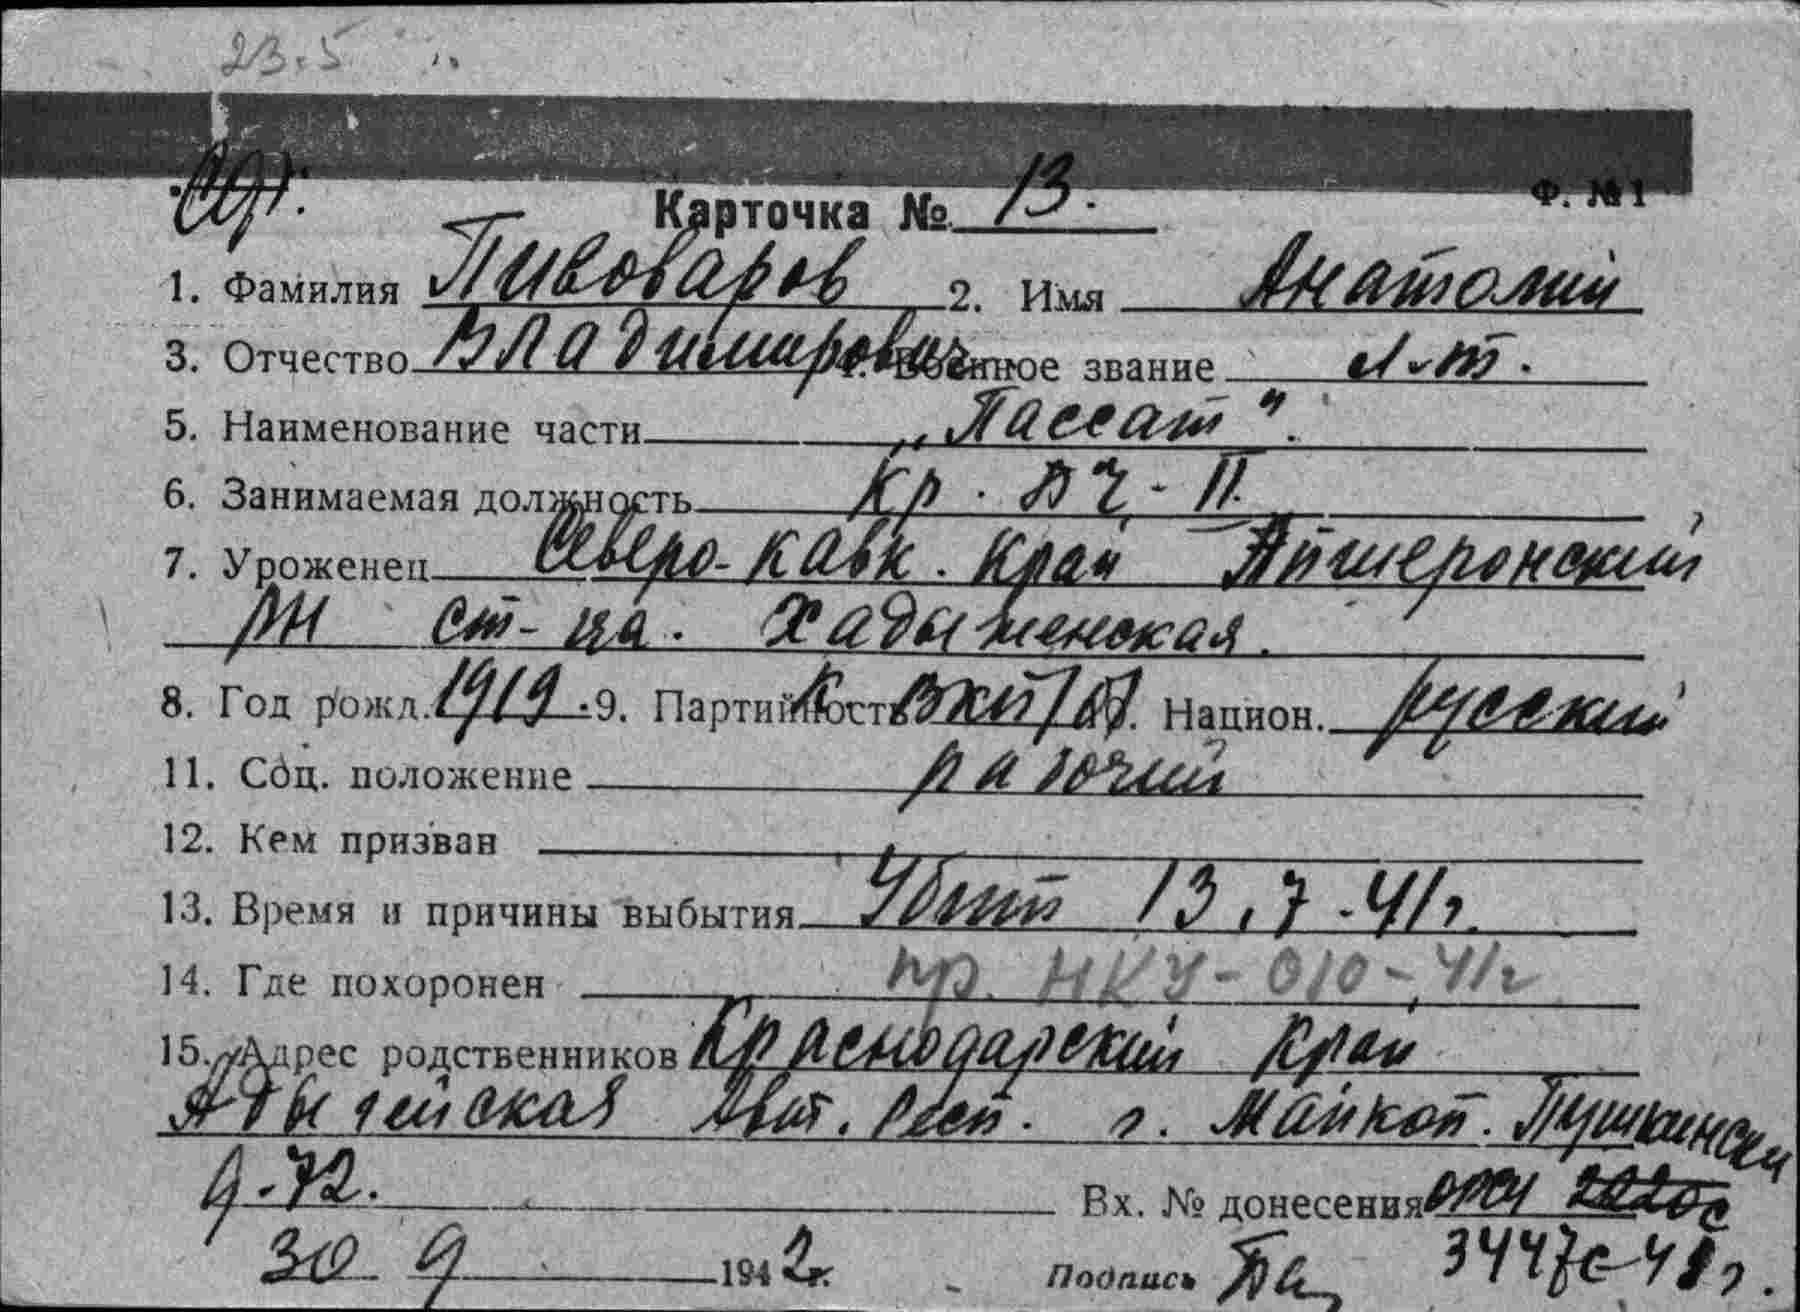 23.5
Карточка № 13. Ф. № 1
1. Фамилия Пивоваров 2. Имя Анатолий
3. Отчество Владимирович 4. Военное звание л-т.
5. Наименование части „Пассат".
6. Занимаемая должность Кр. БЧ-II.
7. Уроженец Северо-Кавк. край Апшеронский
рн ст-ца. Хадыженская.
8. Год рожд. 1919. 9. Партийность К. ВКП/б/ 10. Национ. русский
11. Соц. положение рабочий
12. Кем призван
13. Время и причины выбытия Убит 13.7.41г.
14. Где похоронен пр. НКУ-010-41г
15. Адрес родственников Краснодарский край
Адыгейская Авт. Респ. г. Майкоп. Пушкинская
д-72. Вх. № донесения орг 2220с
30 9 1942г. Подпись 3447с-41г.